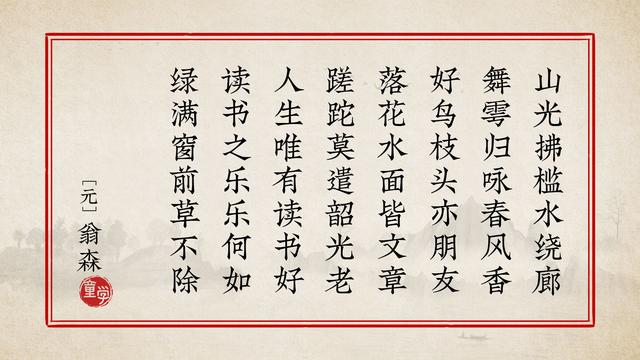 山光拂槛水绕廊
舞雩归咏春风香
好鸟枝头亦朋友
落花水面皆文章
蹉跎莫遣韶光老
人生唯有读书好
读书之乐乐何如
绿满窗前草不除
[元] 翁森
童学